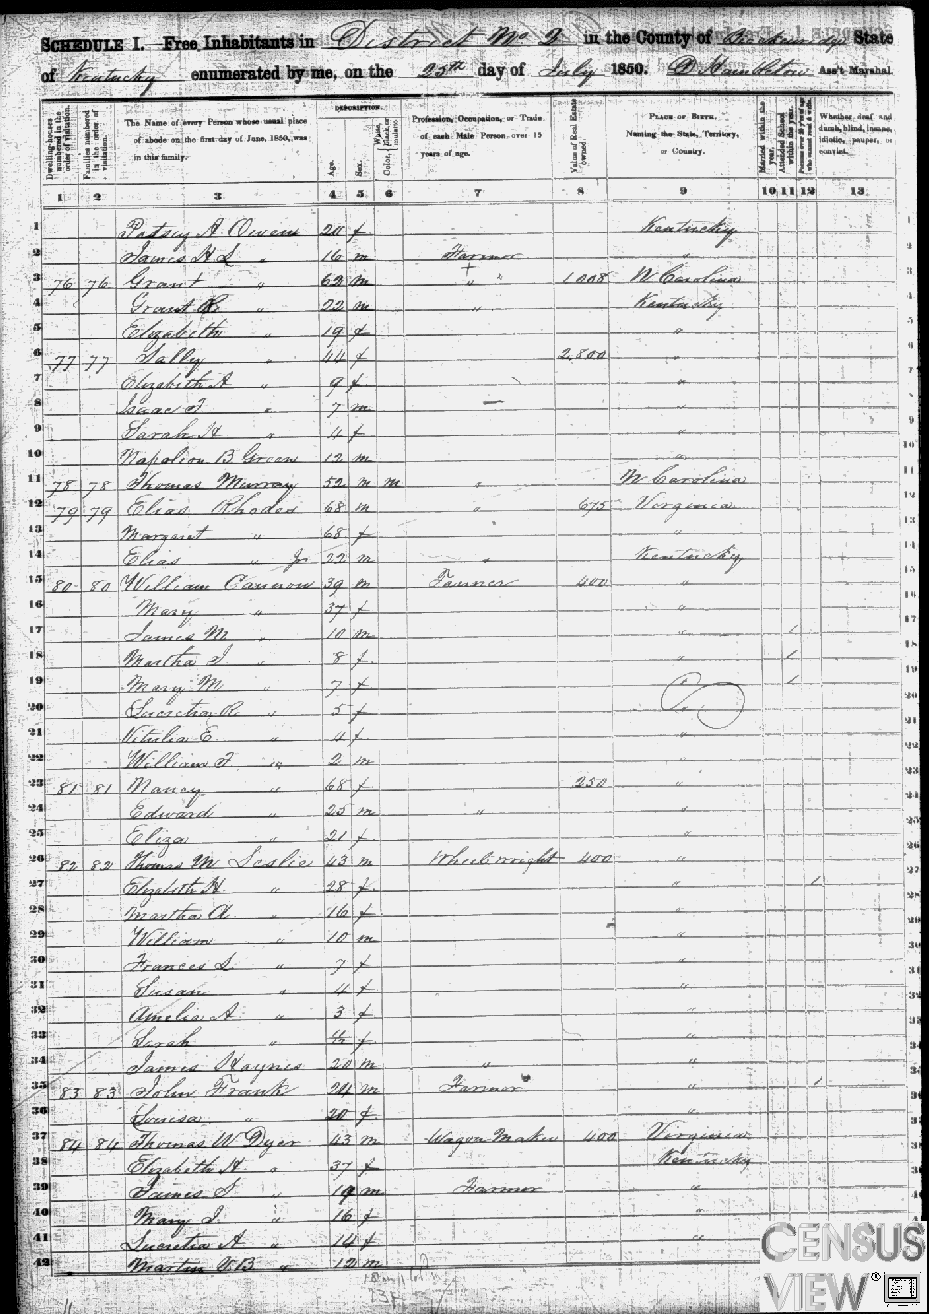 SCHEDULE I. Free Inhabitants in District No 2 in the County of State
of Kentucky enumerated by me, on the 25th day of July 1850. Ass't Marshal.
Dwelling-houses numbered in the order of visitation.
Families numbered in the order of visitation.
The Name of every Person whose usual place of abode on the first day of June, 1850, was in this family.
DESCRIPTION.
Age.
Sex.
Color, White, black or mulatto.
Profession, Occupation, or Trade of each Male Person over 15 years of age.
Value of Real Estate owned.
PLACE OF BIRTH. Naming the State, Territory, or Country.
Married within the year.
Attended School within the year.
Persons over 20 y'rs of age who cannot read & write.
Whether deaf and dumb, blind, insane, idiotic, pauper, or convict.
1 2 3 4 5 6 7 8 9 10 11 12 13
1 Patsey A Owens 20 f Kentucky
2 James H L " 16 m Farmer "
3 76 76 Grant " 62 m " 1008 N Carolina
4 Grant R. " 22 m " Kentucky
5 Elizabeth " 19 f "
6 77 77 Sally " 44 f 2,800 "
7 Elizabeth A " 9 f "
8 Isaac F " 7 m "
9 Sarah H " 4 f "
10 Napoleon B Green 12 m "
11 78 78 Thomas Murray 52 m m " N Carolina
12 79 79 Elias Rhodes 68 m " 675 Virginia
13 Margaret " 68 f "
14 Elias " Jr 22 m " Kentucky
15 80 80 William Cannon 39 m Farmer 400 "
16 Mary " 37 f "
17 James M. " 10 m " 1
18 Martha J. " 8 f " 1
19 Mary M. " 7 f " 1
20 Lucretia R. " 5 f "
21 E. " 4 f "
22 William F " 2 m "
23 81 81 Nancy " 68 f 250 "
24 Edward " 25 m " "
25 Eliza " 21 f "
26 82 82 Thomas M Leslie 43 m Wheelwright 400 "
27 Elizabeth H " 28 f " 1
28 Martha A " 16 f "
29 William " 10 m "
30 Frances L " 7 f "
31 Susan " 4 f "
32 Amelia A " 3 f "
33 Sarah " f "
34 James Haynes 20 m " "
35 83 83 John Frank 24 m Farmer " 1
36 Louisa " 20 f "
37 84 84 Thomas W Dyer 43 m Wagon Maker 400 Virginia
38 Elizabeth H. " 37 f Kentucky
39 James S " 19 m Farmer "
40 Mary J. " 16 f "
41 Lucretia A " 14 f "
42 Martin V B " 12 m
CENSUS
VIEW®